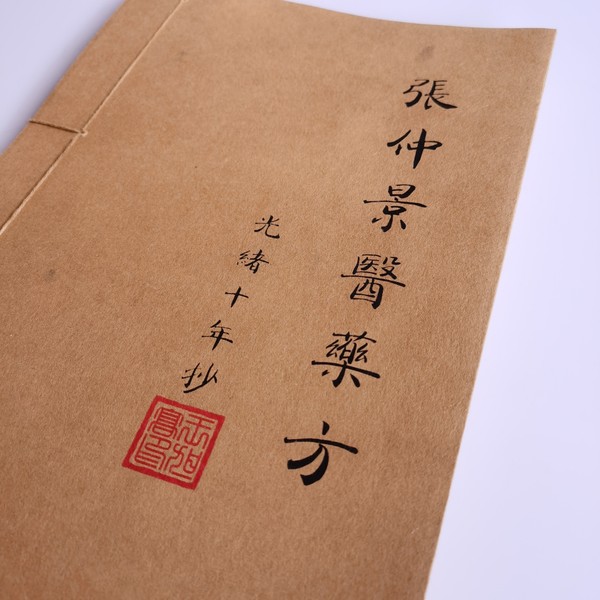 張仲景醫藥方
光緒十年抄